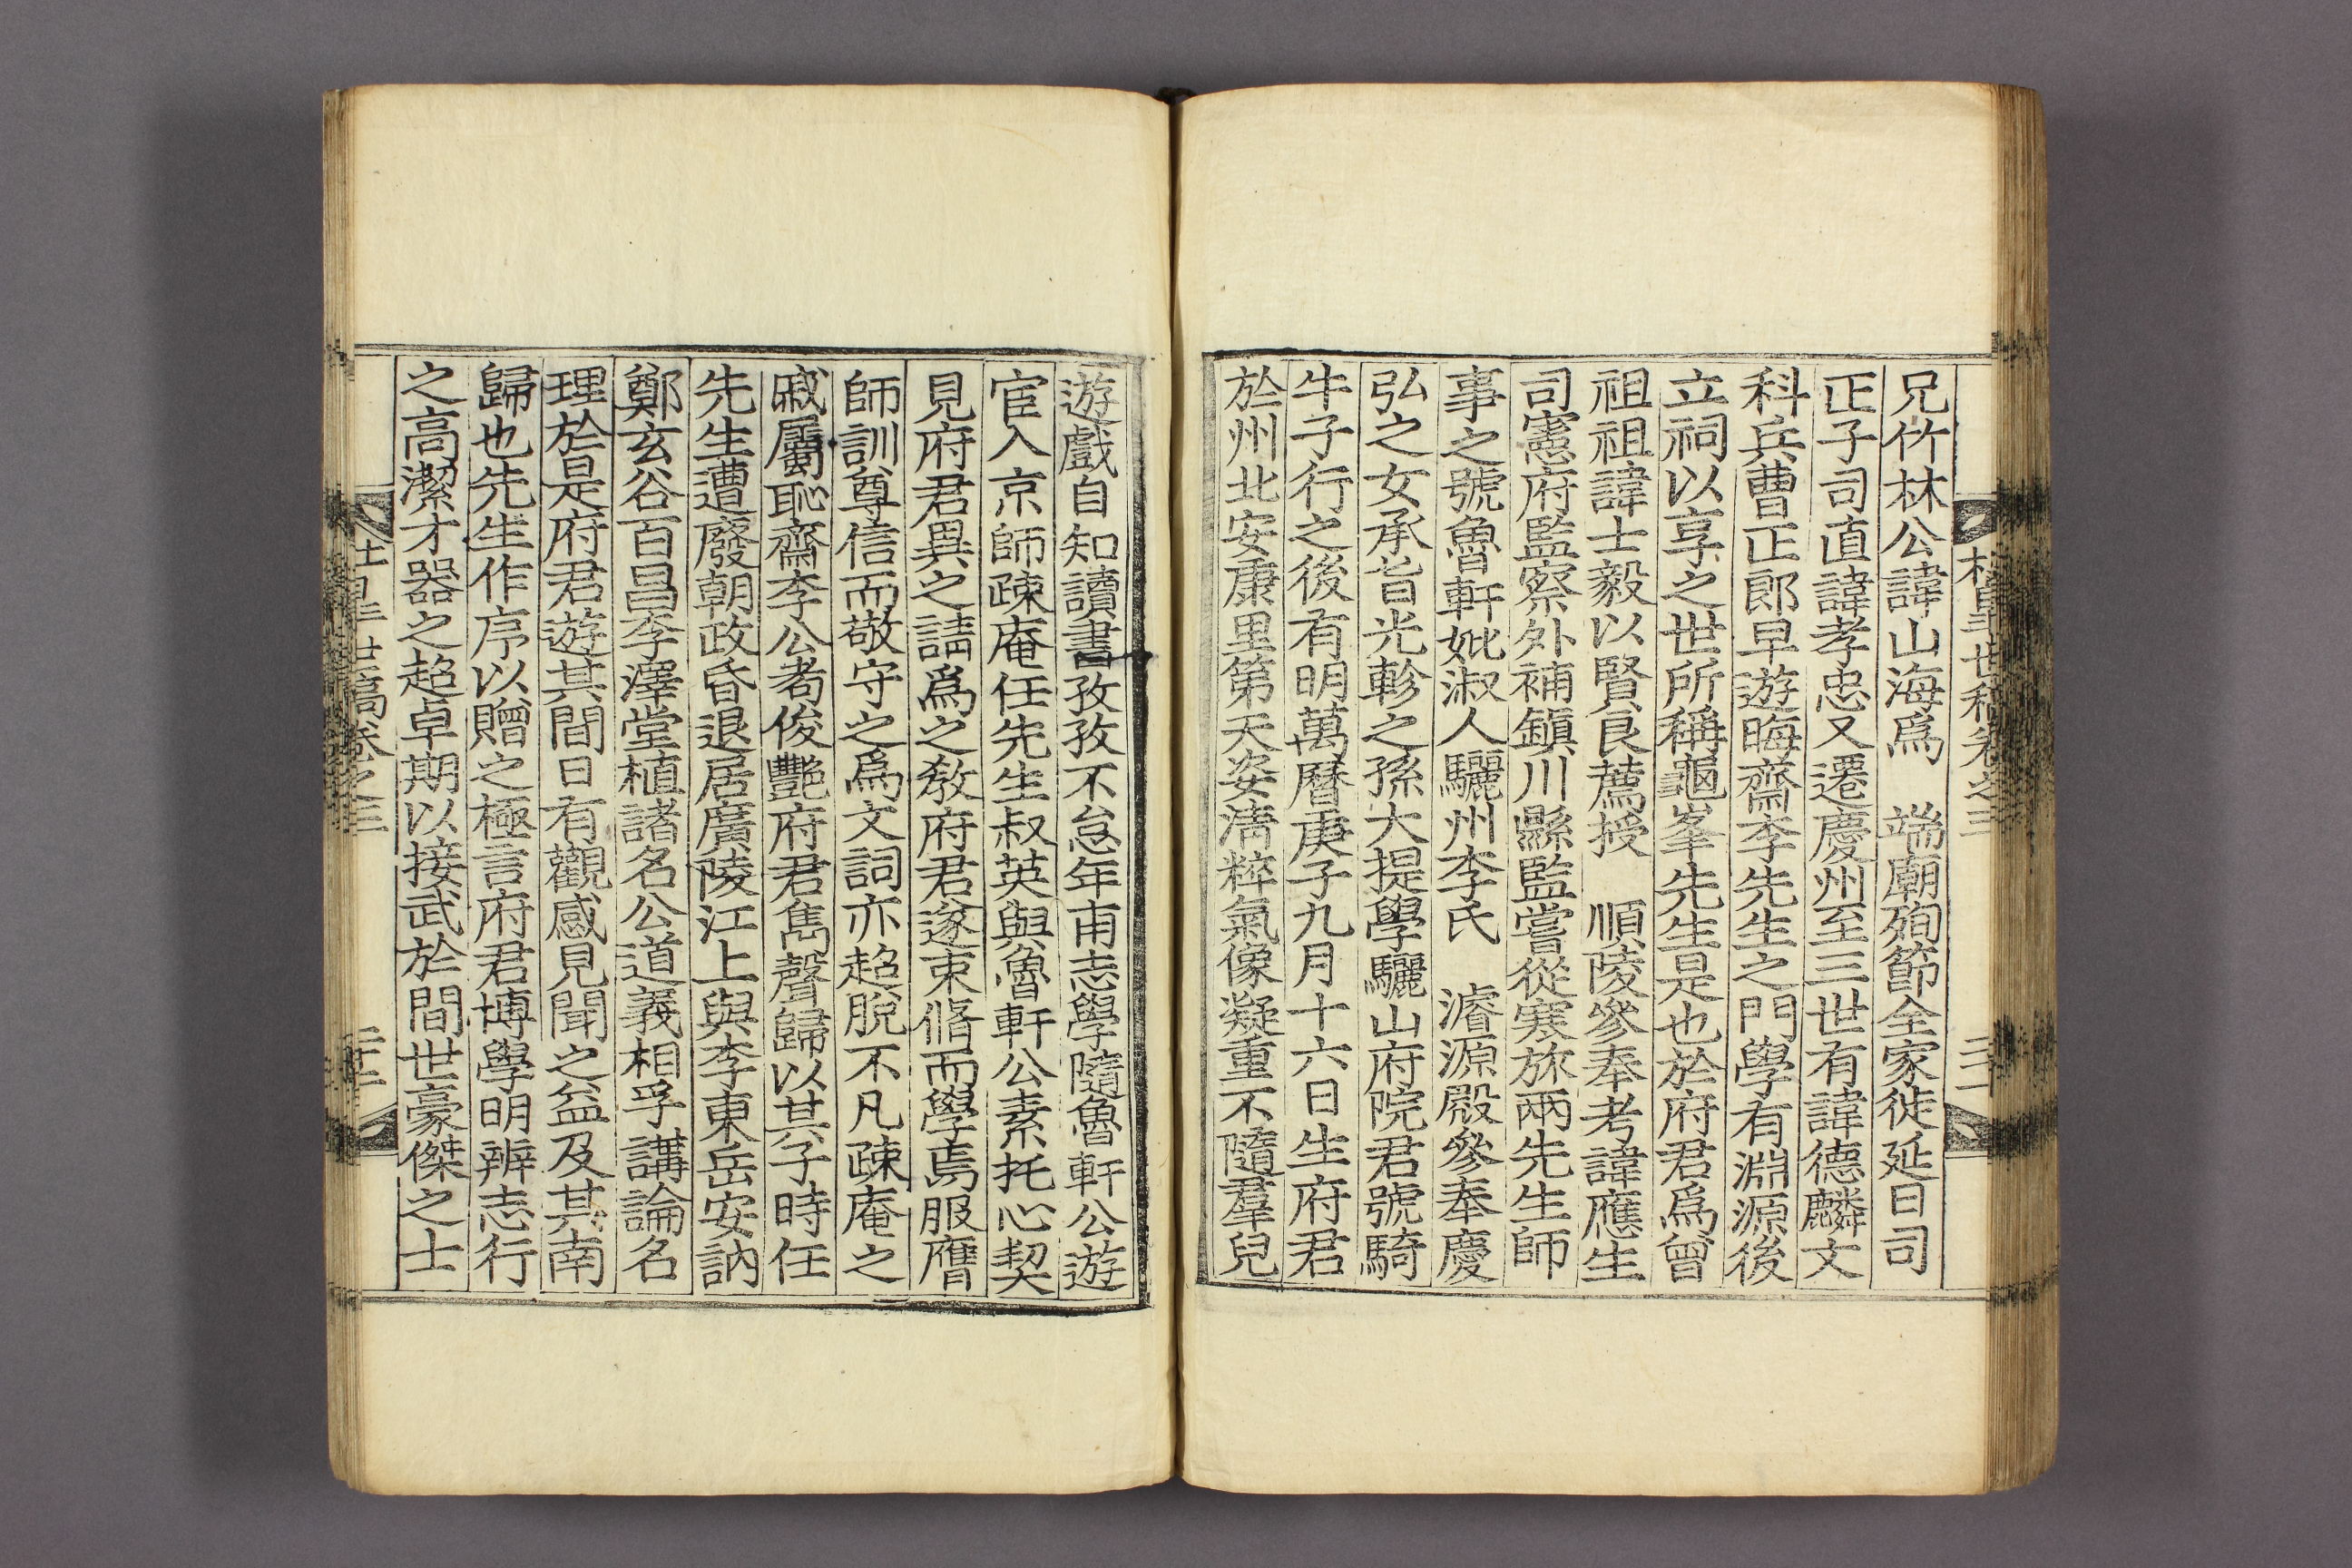 兄竹林公諱山海爲　端廟殉節全家徙延日司
正子司直諱孝忠又遷慶州至三世有諱德麟文
科兵曹正郎早遊晦齋李先生之門學有淵源後
立祠以享之世所稱龜峯先生是也於府君爲曾
祖祖諱士毅以賢良薦授　順陵參奉考諱應生
司憲府監察外補鎭川縣監嘗從寒旅兩先生師
事之號魯軒妣淑人驪州李氏　濬源殿參奉慶
弘之女承旨光軫之孫大提學驪山府院君號騎
牛子行之後有明萬曆庚子九月十六日生府君
於州北安康里第天姿淸粹氣像凝重不隨羣兒
遊戲自知讀書孜孜不怠年甫志學隨魯軒公遊
宦入京師疎庵任先生叔英與魯軒公素托心契
見府君異之請爲之敎府君遂束脩而學焉服膺
師訓尊信而敬守之爲文詞亦超脫不凡疎庵之
戚屬恥齋李公耉俊艶府君雋聲歸以其子時任
先生遭廢朝政昏退居廣陵江上與李東岳安訥
鄭玄谷百昌李澤堂植諸名公道義相孚講論名
理於是府君遊其間日有觀感見聞之益及其南
歸也先生作序以贈之極言府君博學明辨志行
之高潔才器之超卓期以接武於間世豪傑之士
世稿卷之三